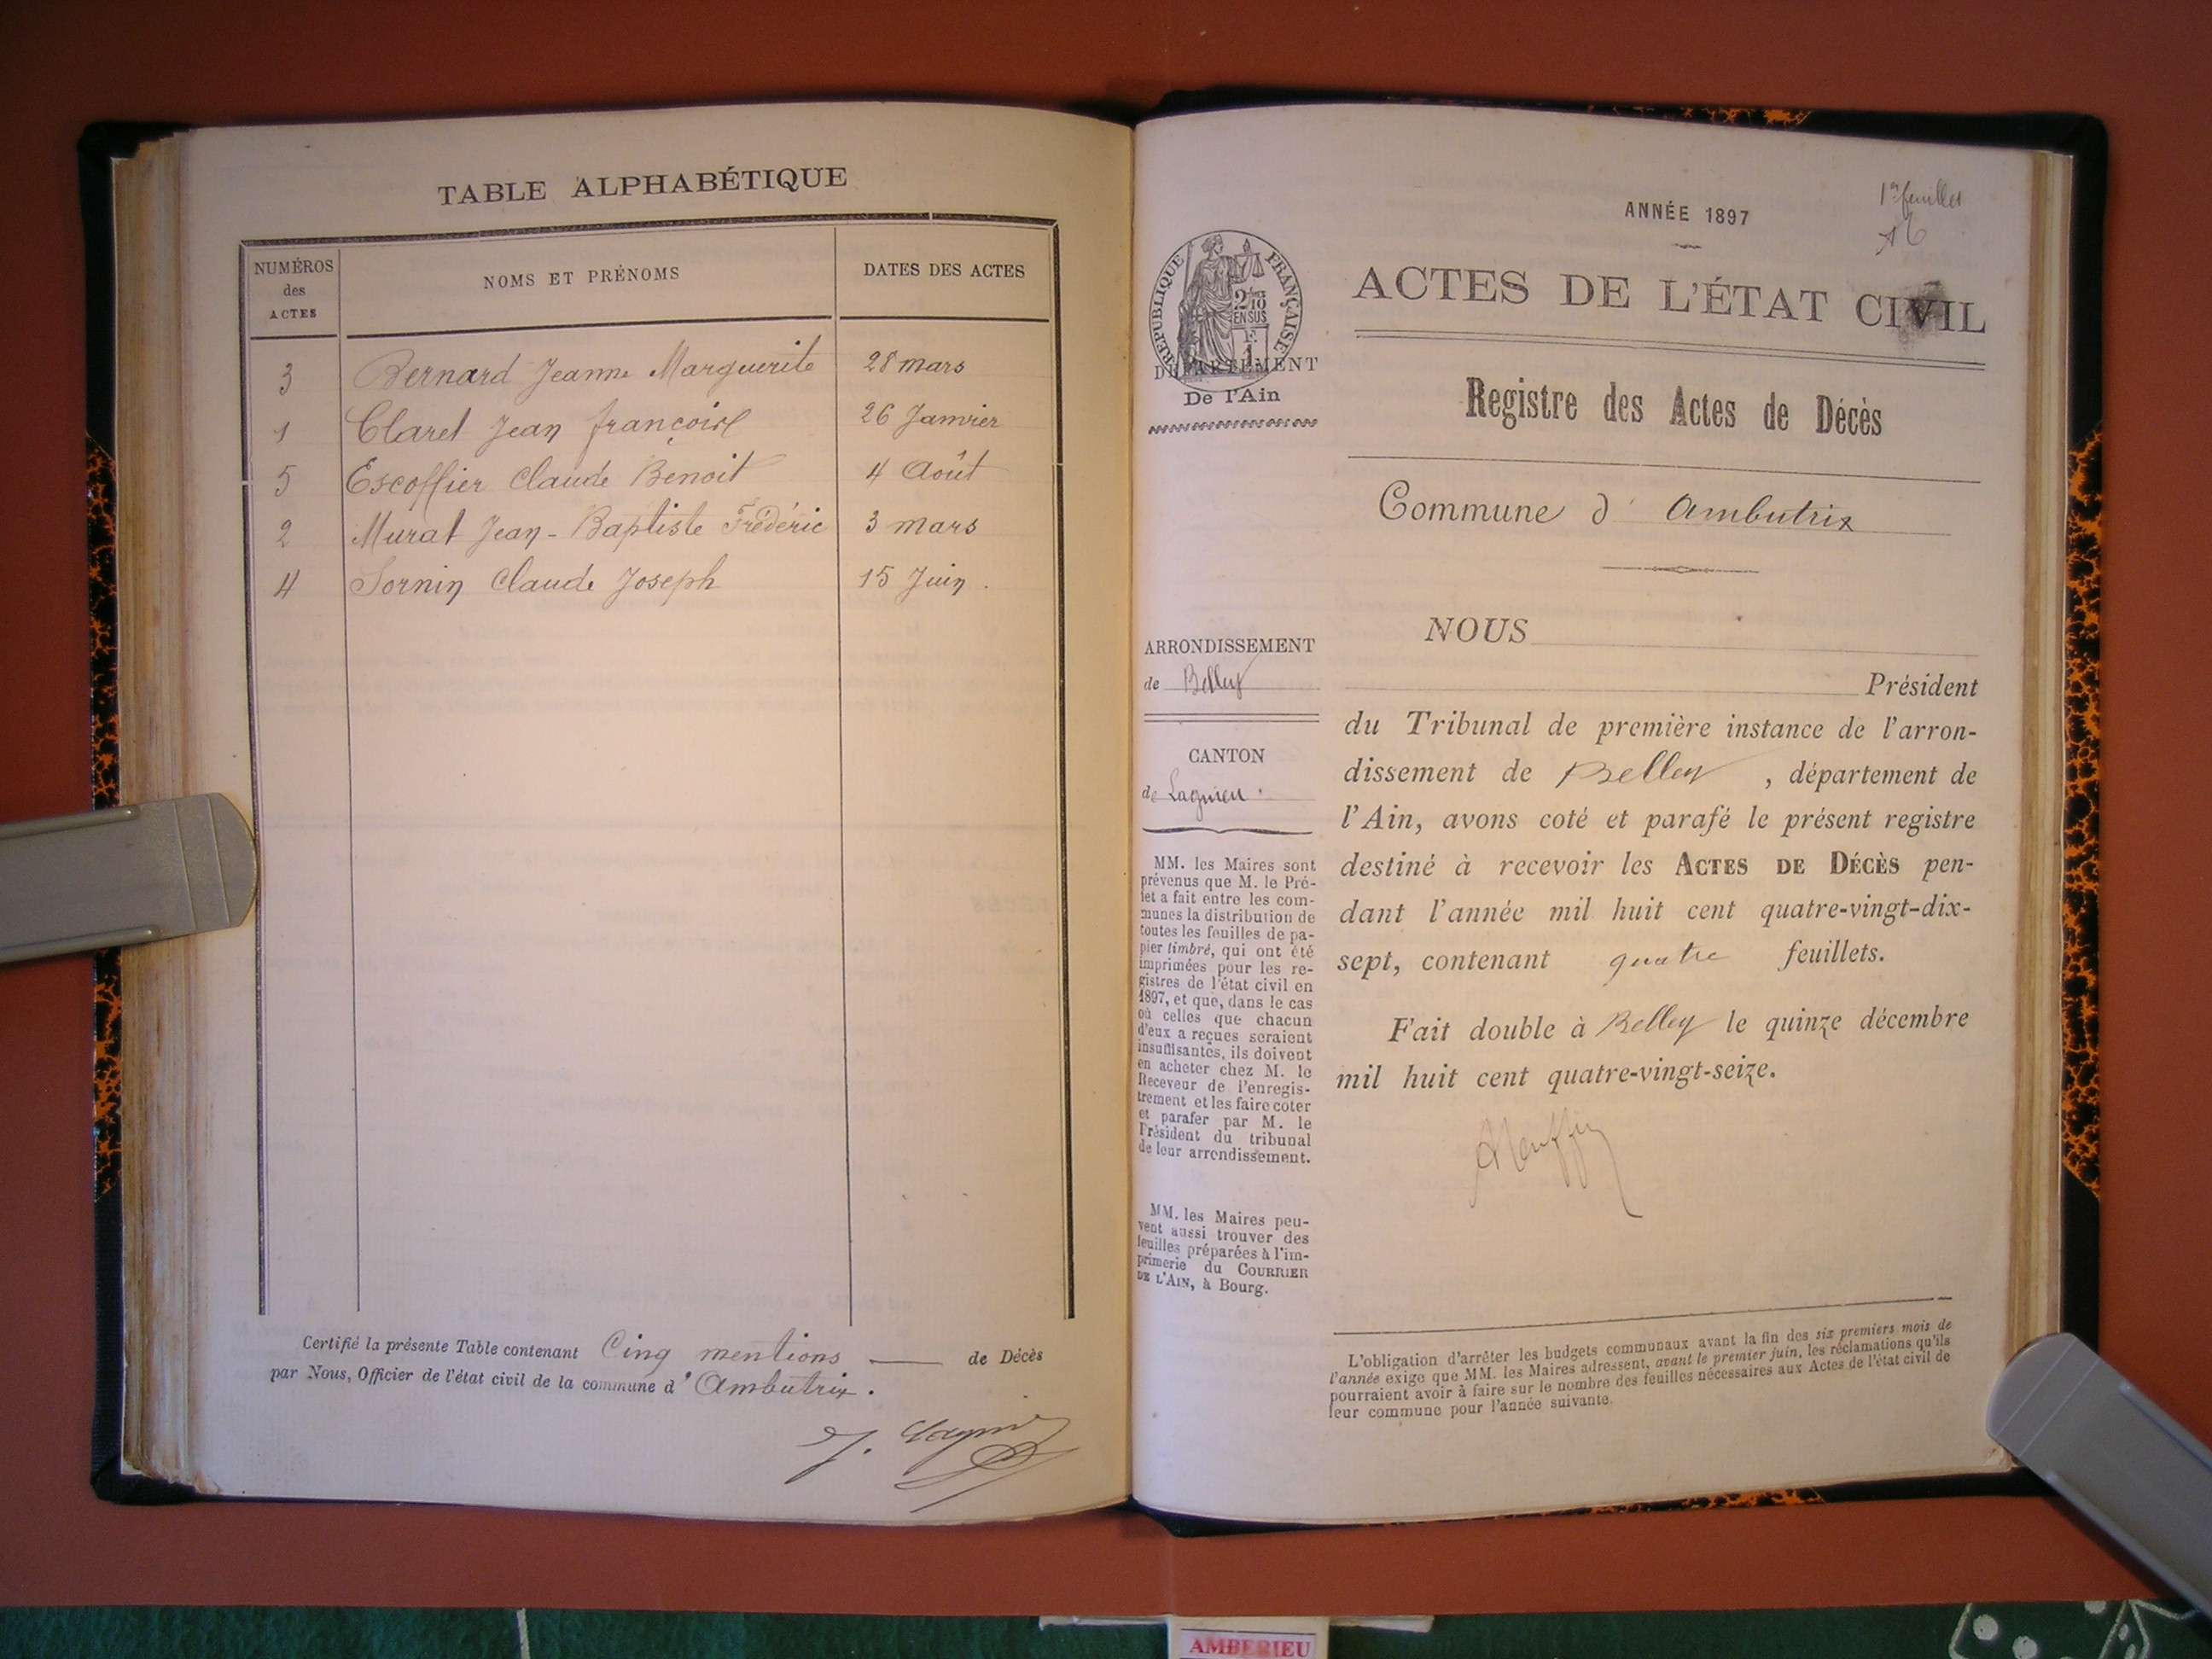 TABLE ALPHABÉTIQUE
NUMÉROS
des
ACTES
NOMS ET PRÉNOMS
DATES DES ACTES
3 Bernard Jeanne Marguerite 28 mars
1 Claret Jean françois 26 Janvier
5 Escoffier Claude Benoit 4 Août
2 Murat Jean-Baptiste Frédéric 3 mars
4 Sornin Claude Joseph 15 Juin.
Certifié la présente Table contenant Cinq mentions — de Décès
par Nous, Officier de l'état civil de la commune d' Ambutrix.
1er feuillet
ANNÉE 1897
RÉPUBLIQUE FRANÇAISE
2/10
EN SUS
F.
1
DÉPARTEMENT
De l'Ain
ACTES DE L'ÉTAT CIVIL
Registre des Actes de Décès
Commune d' Ambutrix
ARRONDISSEMENT
de Belley
CANTON
de Lagnieu.
MM. les Maires sont
prévenus que M. le Pré-
fet a fait entre les com-
munes la distribution de
toutes les feuilles de pa-
pier timbré, qui ont été
imprimées pour les re-
gistres de l'état civil en
1897, et que, dans le cas
où celles que chacun
d'eux a reçues seraient
insuffisantes, ils doivent
en acheter chez M. le
Receveur de l'enregis-
trement et les faire coter
et parafer par M. le
Président du tribunal
de leur arrondissement.
MM. les Maires peu-
vent aussi trouver des
feuilles préparées à l'im-
primerie du COURRIER
DE L'AIN, à Bourg.
NOUS
Président
du Tribunal de première instance de l'arron-
dissement de Belley , département de
l'Ain, avons coté et parafé le présent registre
destiné à recevoir les ACTES DE DÉCÈS pen-
dant l'année mil huit cent quatre-vingt-dix-
sept, contenant quatre feuillets.
Fait double à Belley le quinze décembre
mil huit cent quatre-vingt-seize.
L'obligation d'arrêter les budgets communaux avant la fin des six premiers mois de
l'année exige que MM. les Maires adressent, avant le premier juin, les réclamations qu'ils
pourraient avoir à faire sur le nombre des feuilles nécessaires aux Actes de l'état civil de
leur commune pour l'année suivante.
AMBERIEU